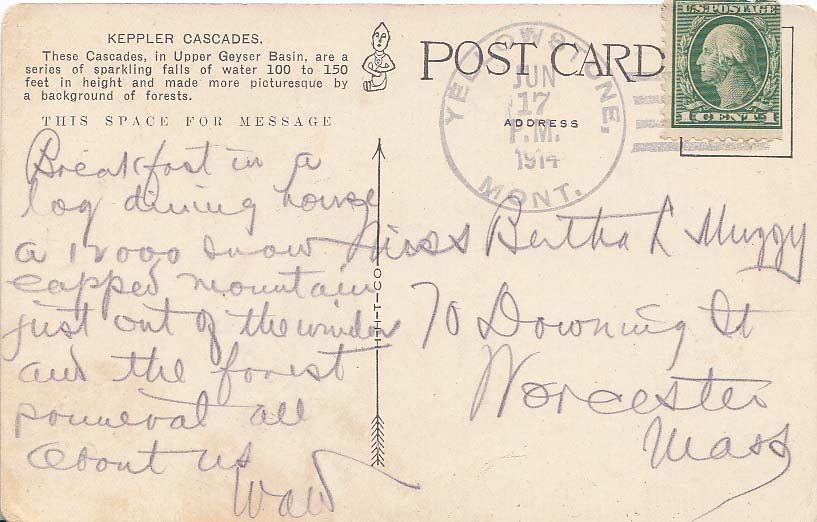 KEPPLER CASCADES.
These Cascades, in Upper Geyser Basin, are a
series of sparkling falls of water 100 to 150
feet in height and made more picturesque by
a background of forests.
THIS SPACE FOR MESSAGE
Breakfast in a
log dining house
a 12000 snow
capped mountain
just out of the window
and the forest
primeval all
about us
POST CARD
ADDRESS
U.S. POSTAGE
1 CENT 1
YELLOWSTONE,
JUN
17
P.M.
1914
MONT.
Miss Bertha L Muzzy
70 Downing St
Worcester
Mass